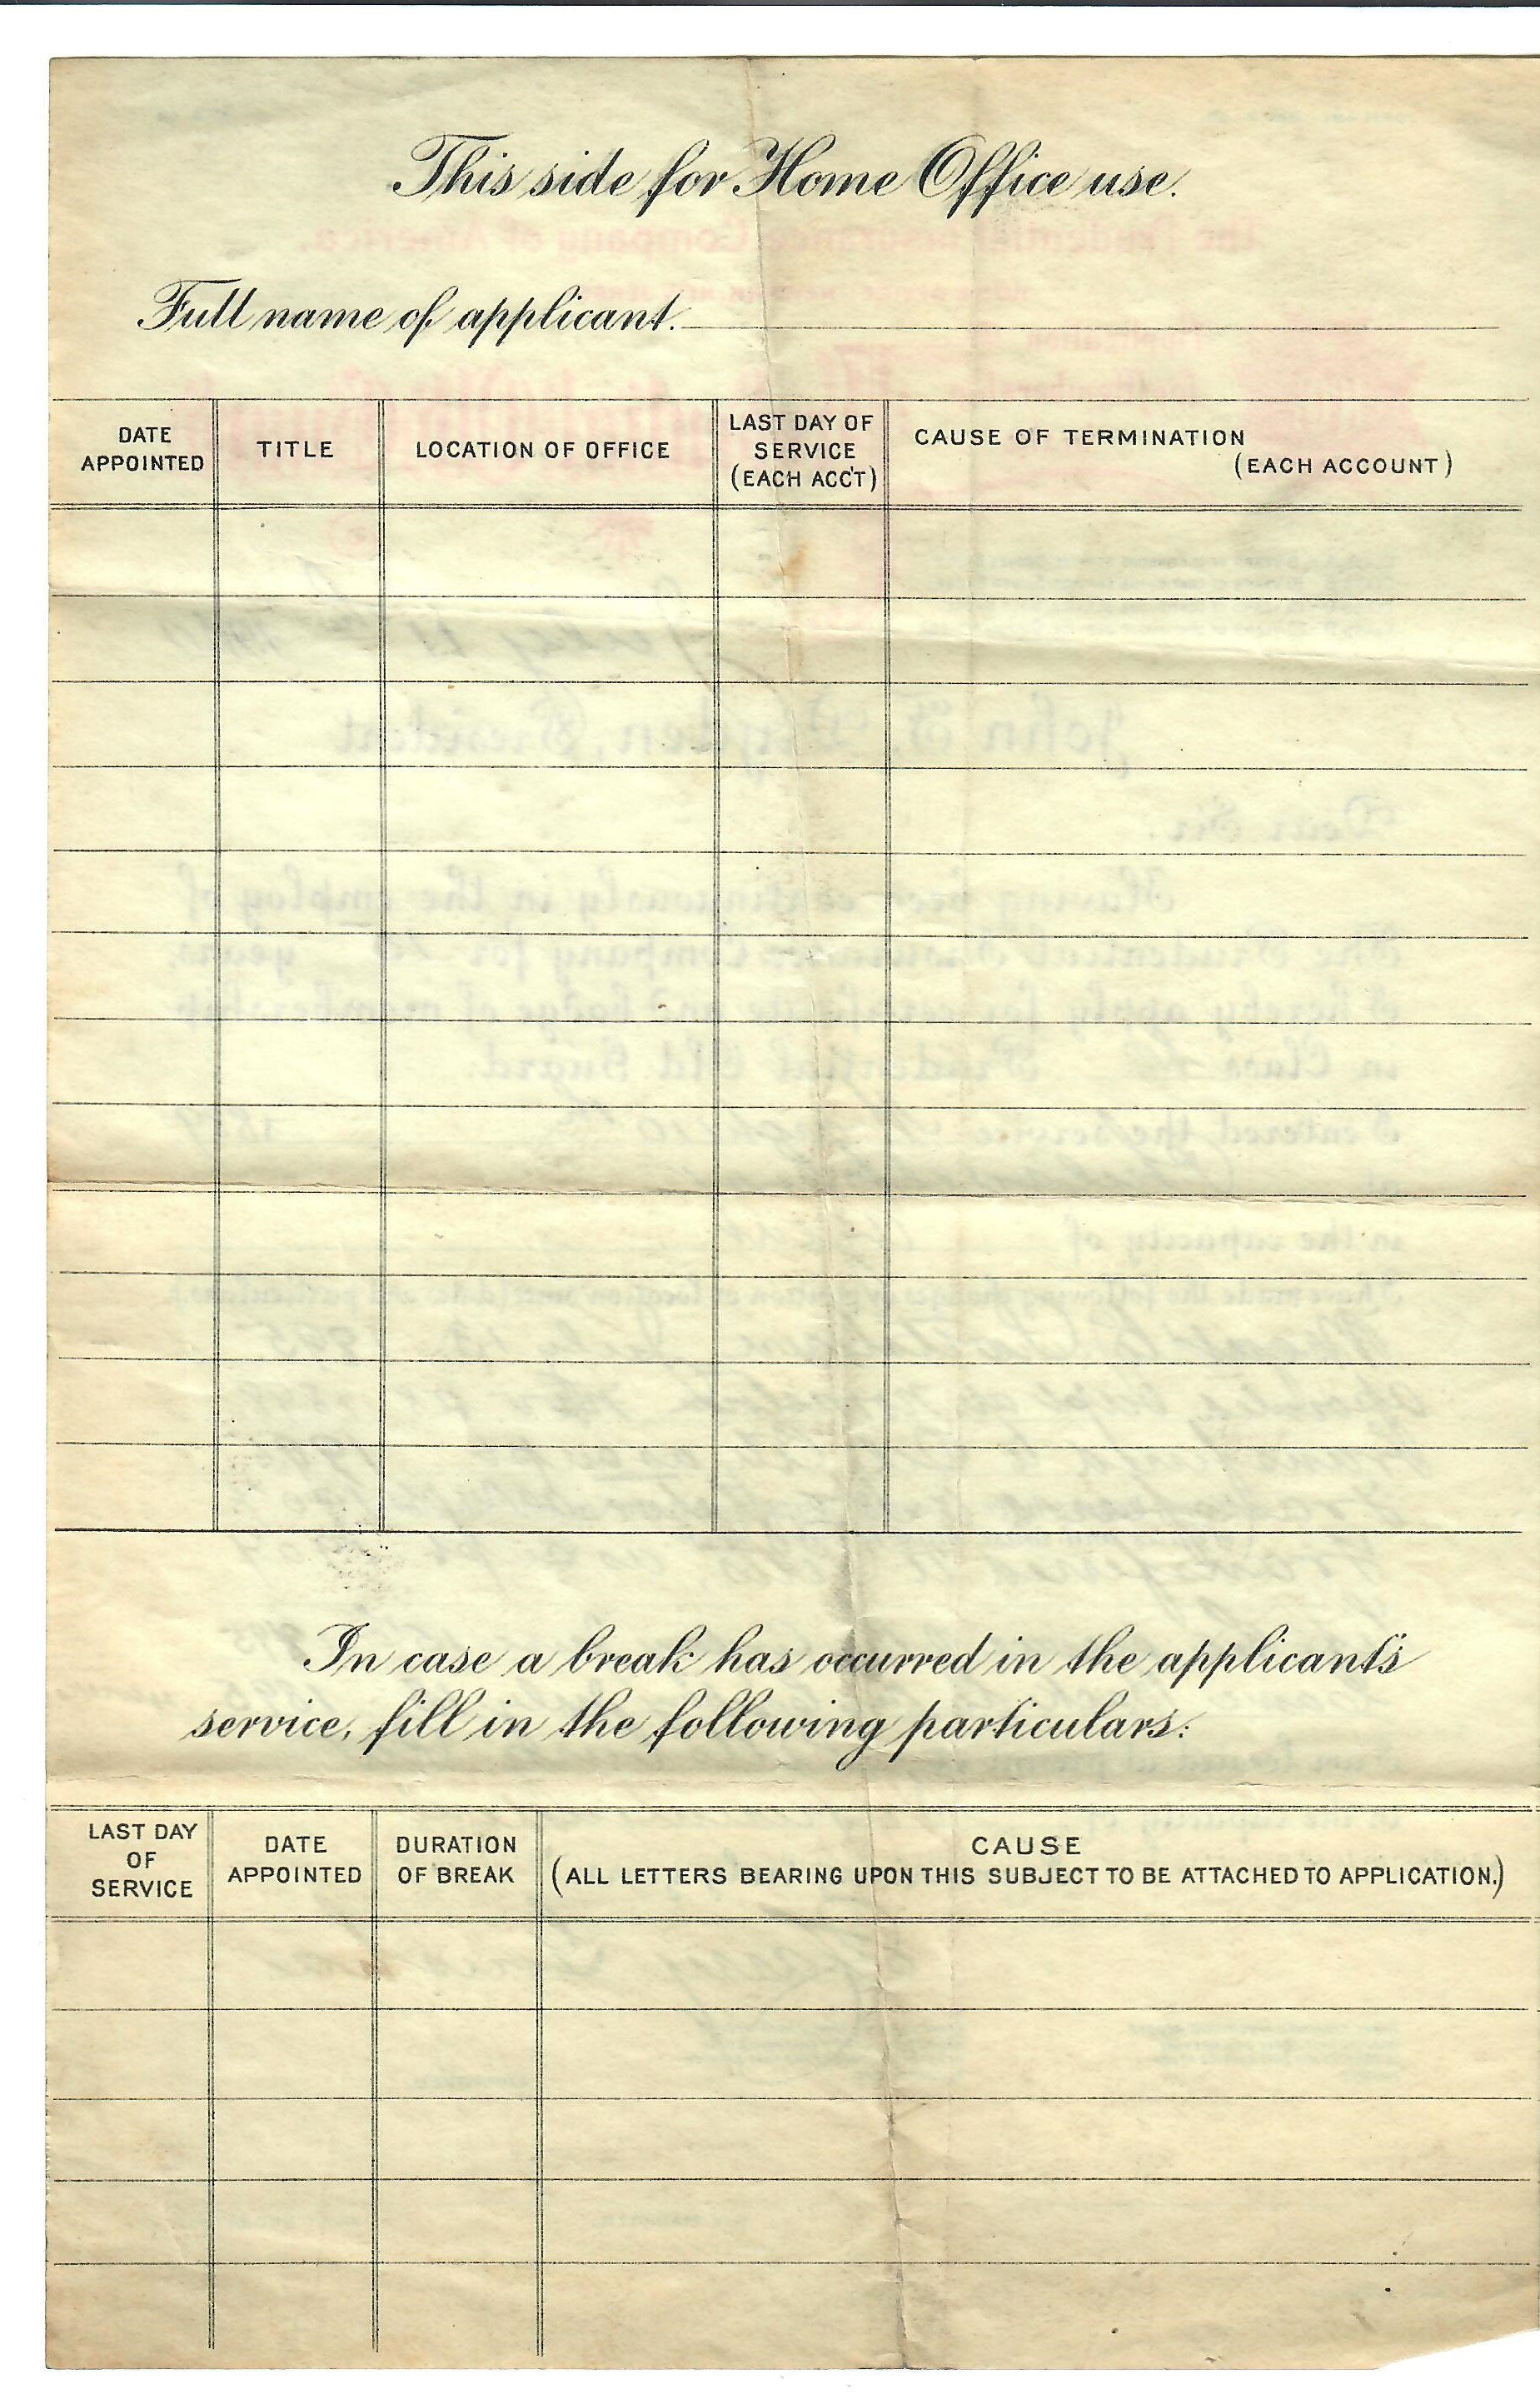 This side for Home Office use.
Full name of applicant.
DATE APPOINTED
TITLE
LOCATION OF OFFICE
LAST DAY OF SERVICE (EACH ACC'T)
CAUSE OF TERMINATION (EACH ACCOUNT)
In case a break has occurred in the applicant's
service, fill in the following particulars:
LAST DAY OF SERVICE
DATE APPOINTED
DURATION OF BREAK
CAUSE
(ALL LETTERS BEARING UPON THIS SUBJECT TO BE ATTACHED TO APPLICATION.)